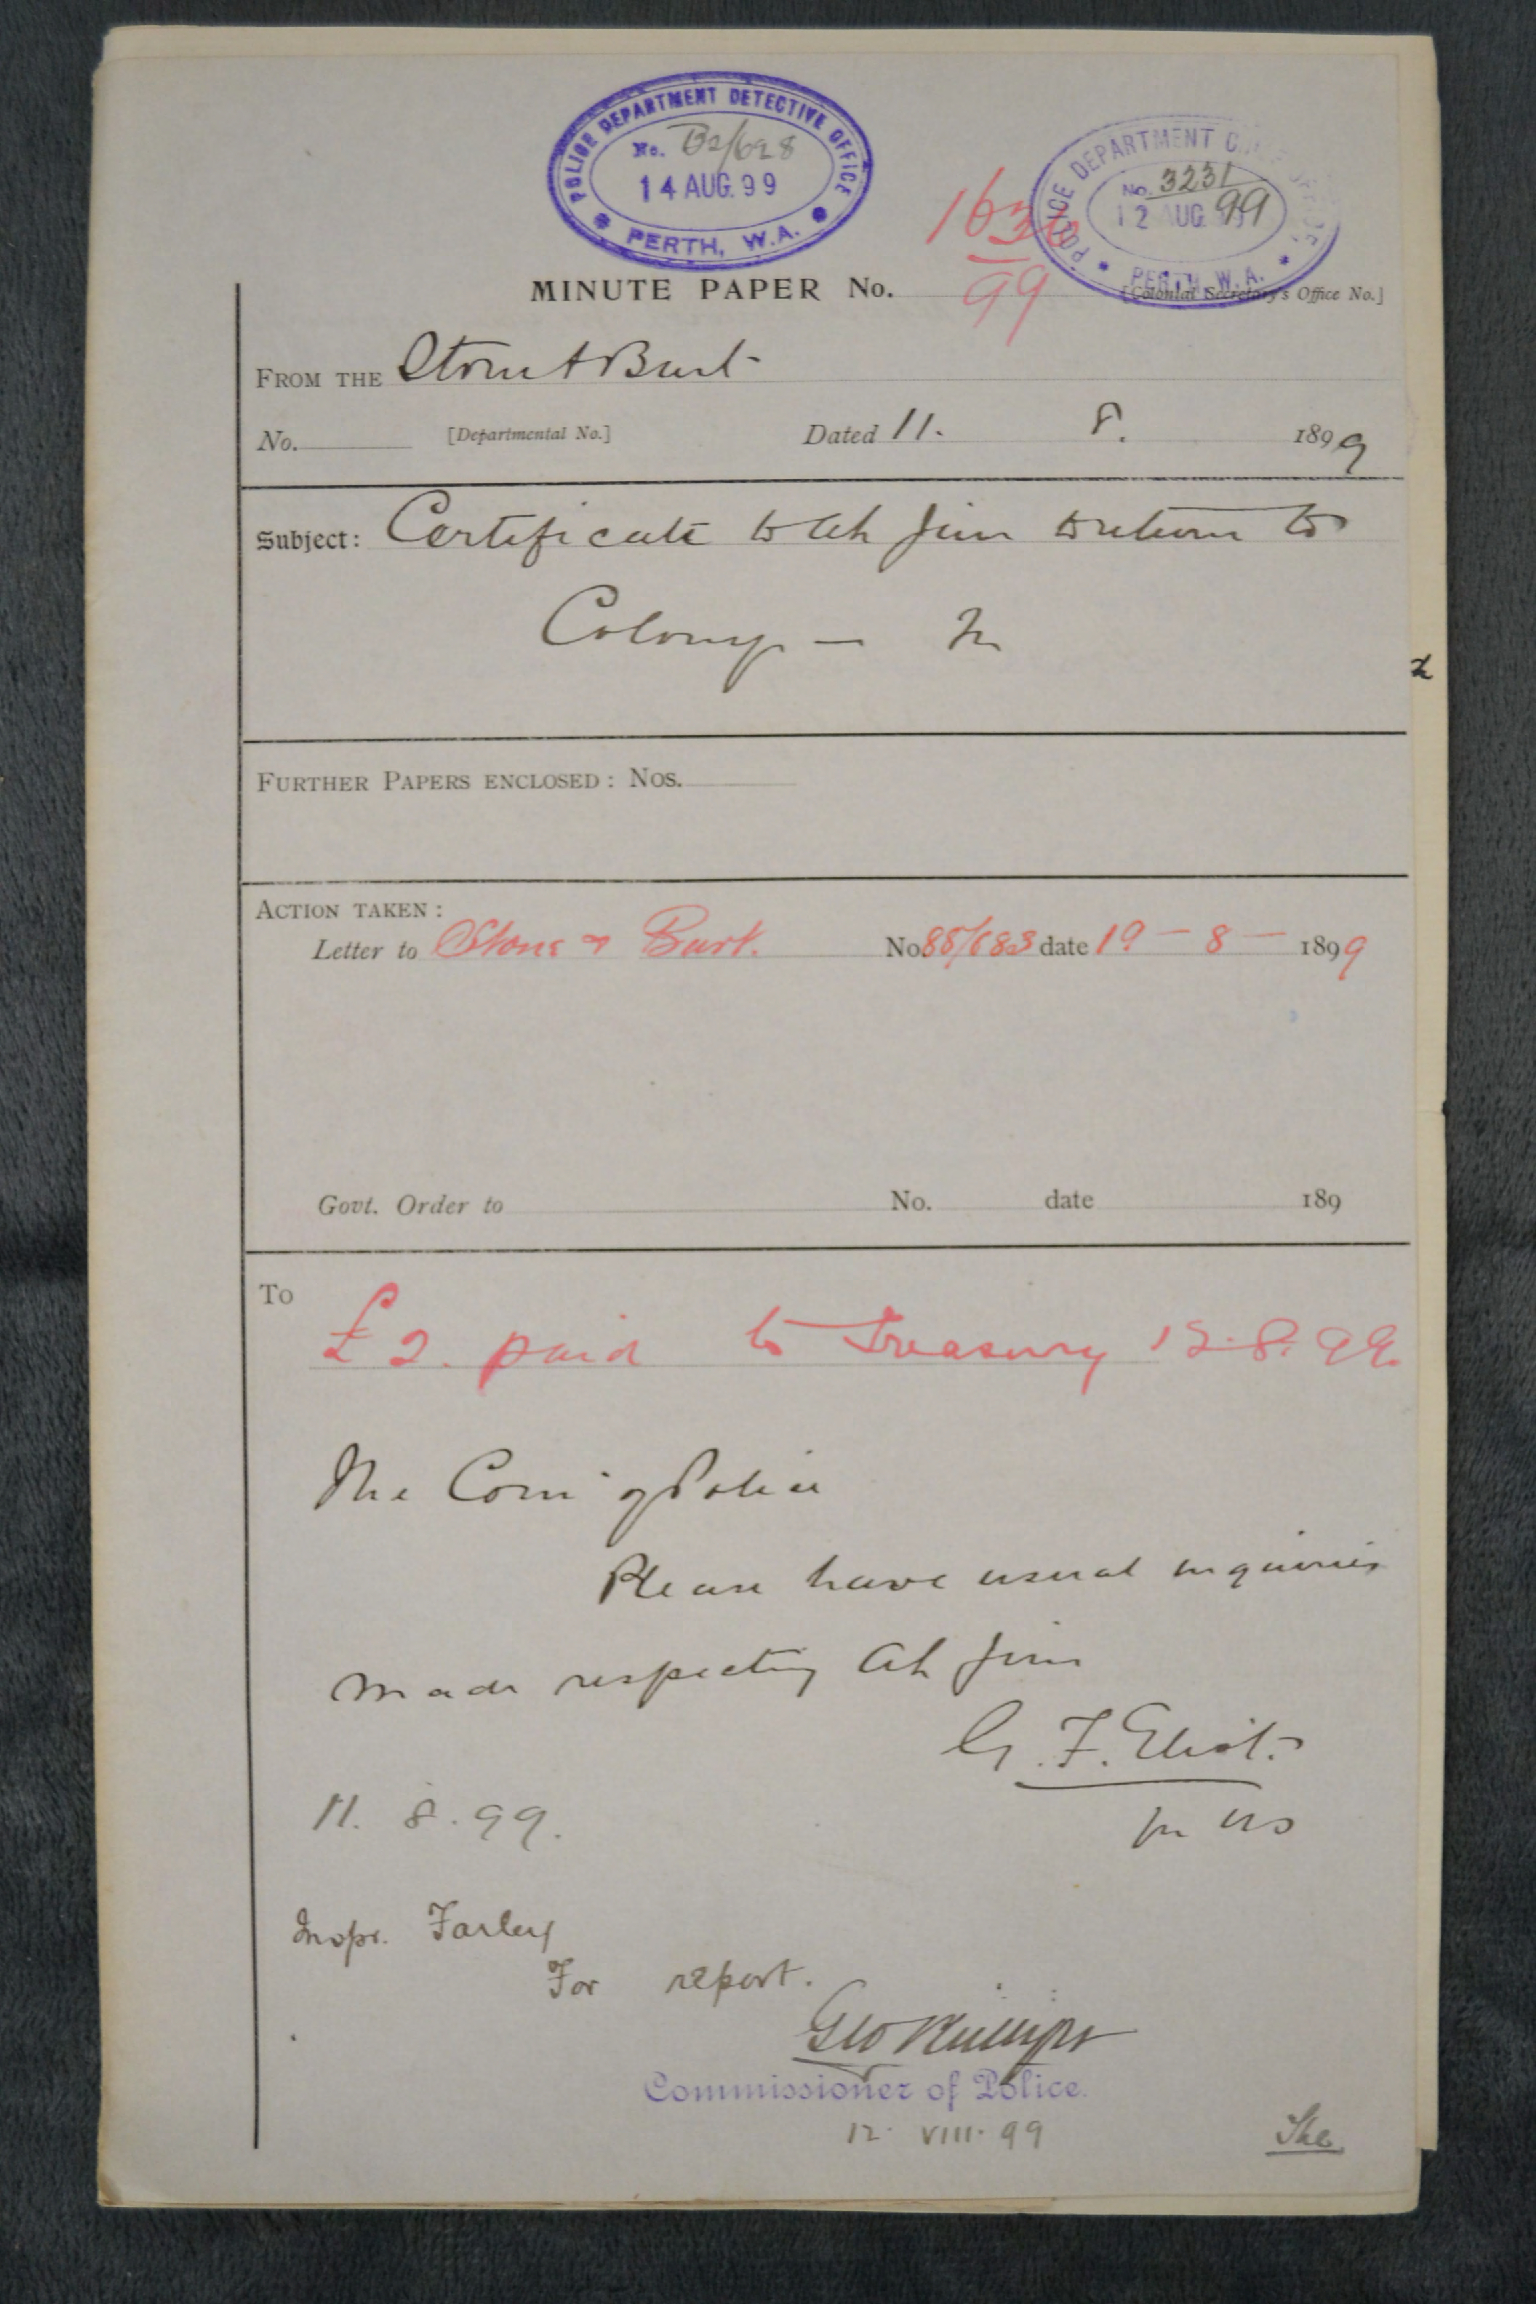 POLICE DEPARTMENT DETECTIVE OFFICE
No. B2/628
14 AUG. 99
PERTH, W.A.
POLICE DEPARTMENT
No. 3231
99
12 AUG.
PERTH, W.A.
1636
99
MINUTE PAPER No.
[Colonial Secretary's Office No.]
FROM THE Stone & Burt
No. [Departmental No.] Dated 11. 8. 1899
Subject: Certificate to Ah Jim to return to
Colony —
FURTHER PAPERS ENCLOSED: Nos.
ACTION TAKEN:
Letter to Stone & Burt. No 88/683 date 19 – 8 – 1899
Govt. Order to No. date 189
To
£2. paid to Treasury 12.8.99.
The Com. of Police
Please have usual inquiries
made respecting Ah Jim
G. F. Eliot.
for US
11. 8. 99.
Inspr. Farley
For report.
Geo Phillips
Commissioner of Police.
12. VIII. 99